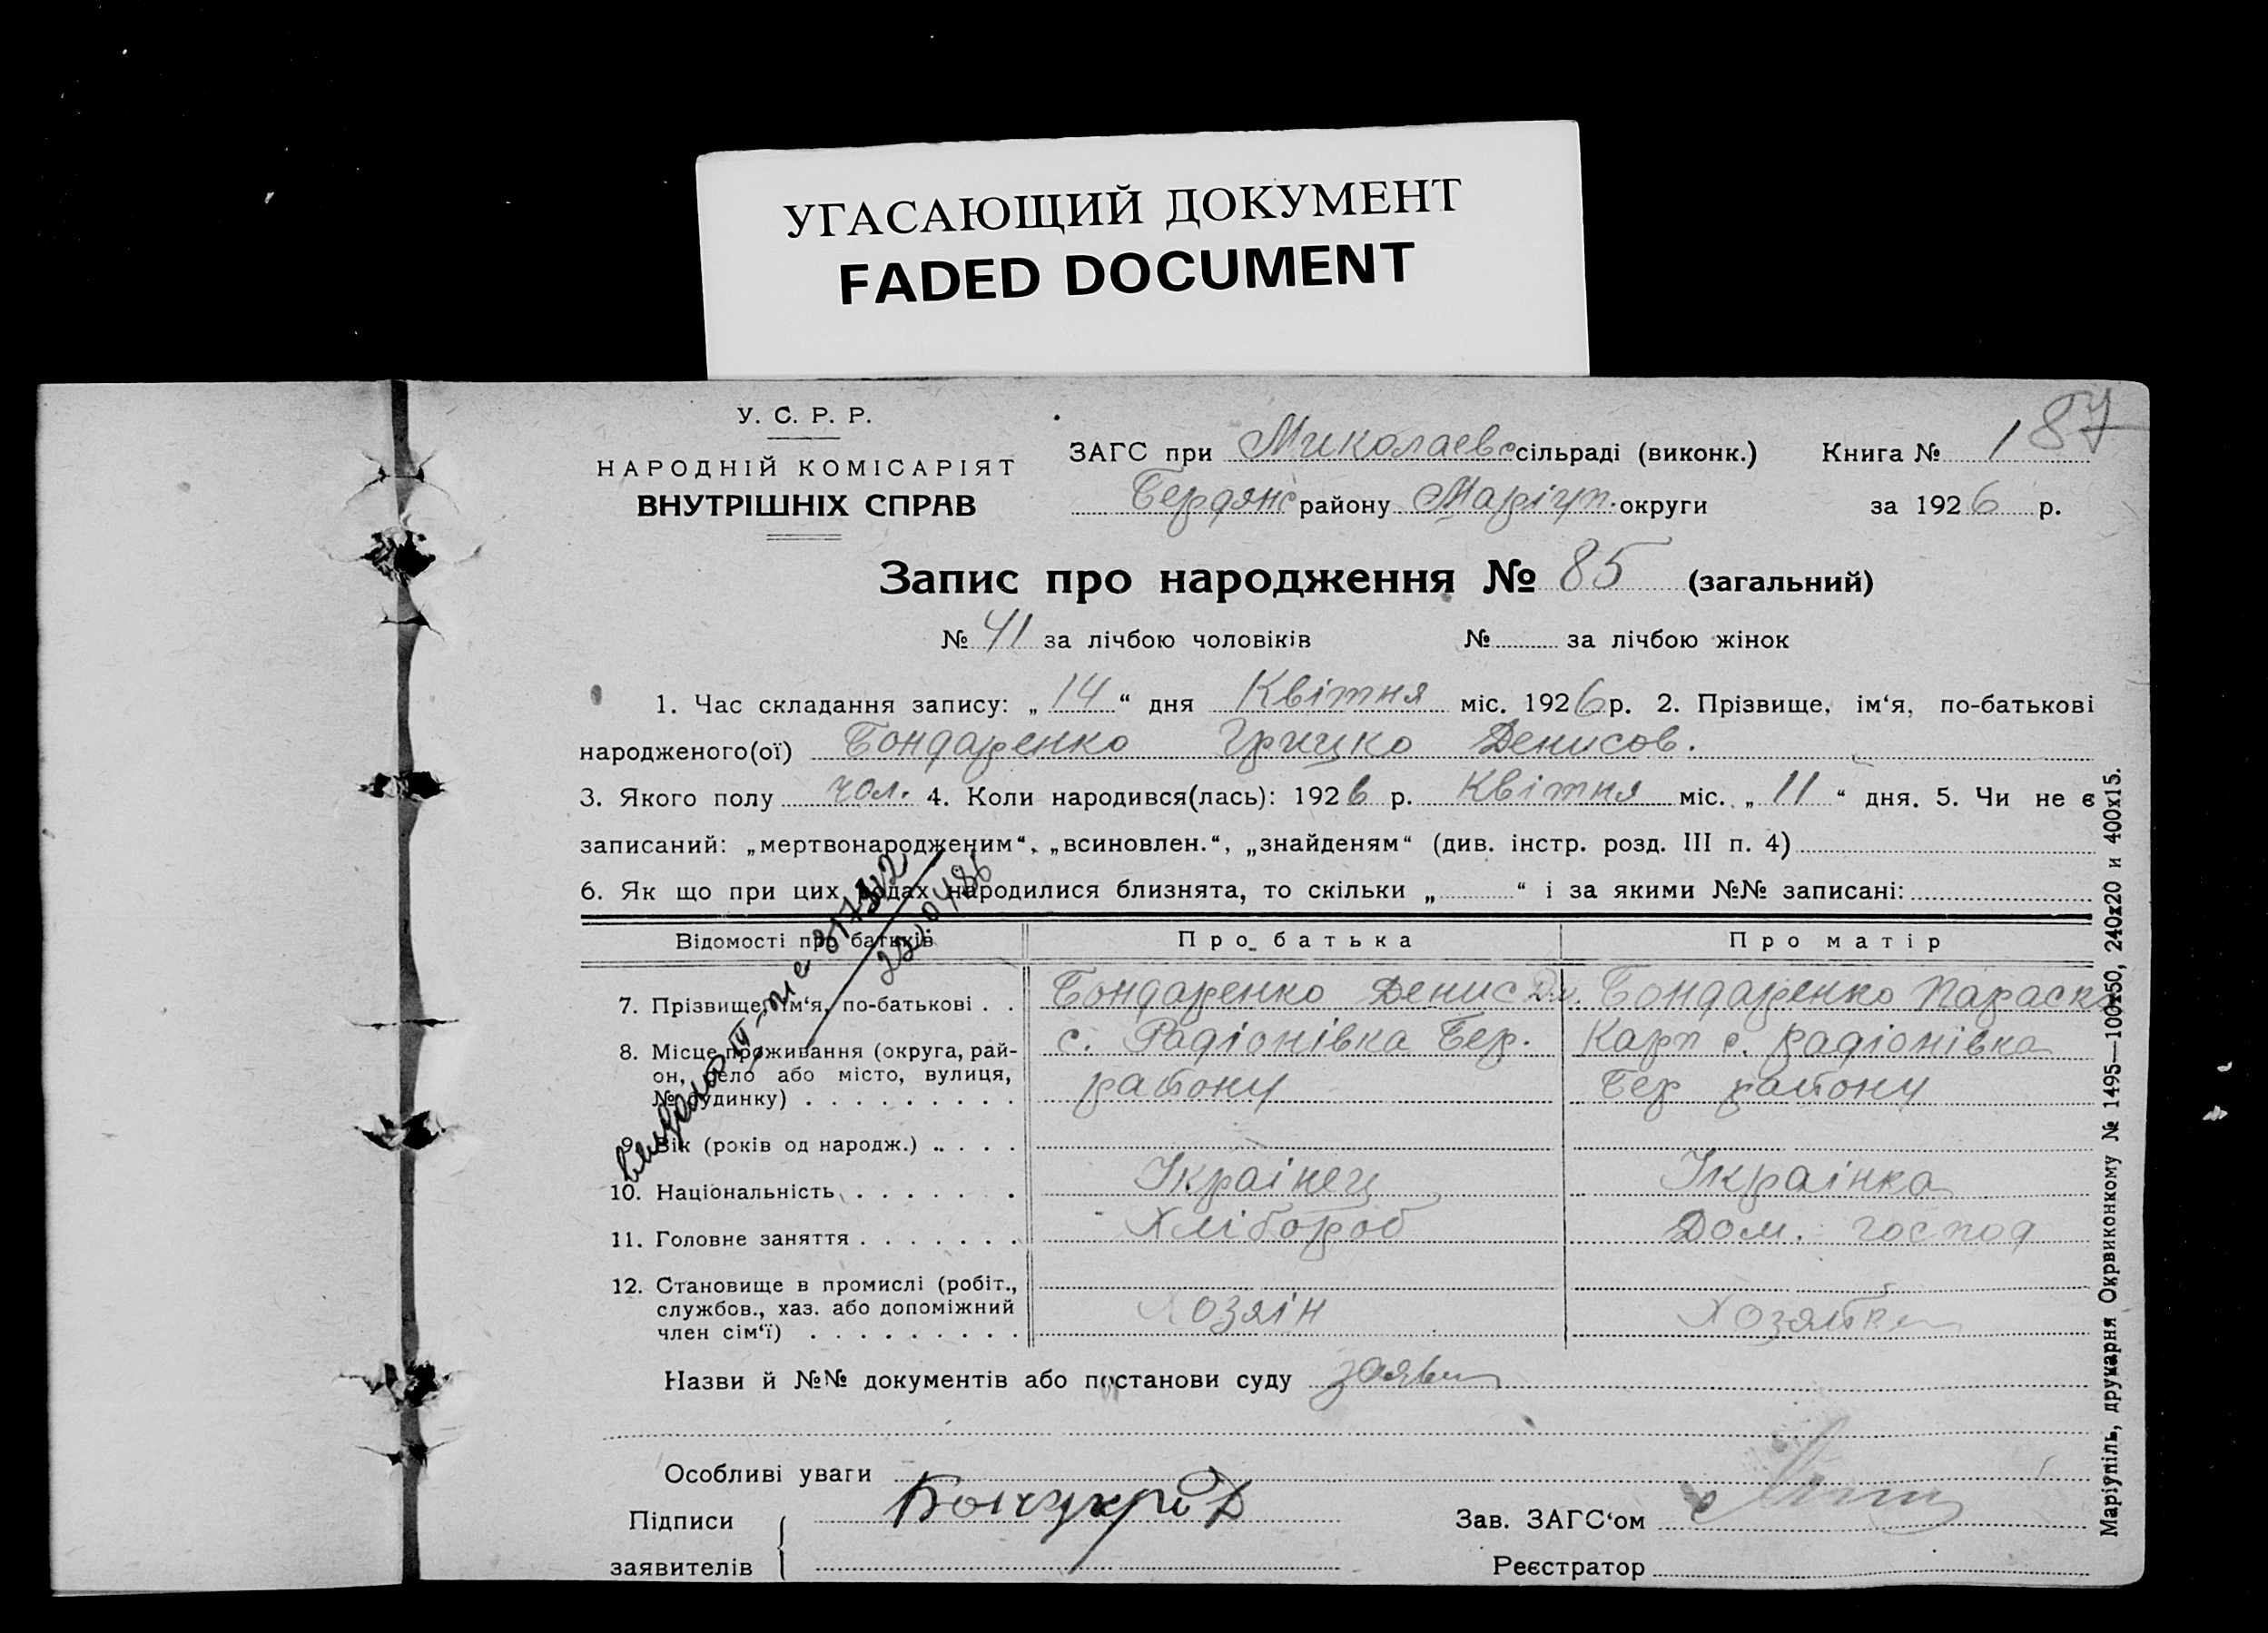 УГАСАЮЩИЙ ДОКУМЕНТ
FADED DOCUMENT
87
У. С. Р. Р.
НАРОДНІЙ КОМІСАРІЯТ
ВНУТРІШНІХ СПРАВ
ЗАГС при Миколаевс сільраді (виконк.) Книга № 1
Бердянс району Маріуп. округи за 1926 р.
Запис про народження № 85 (загальний)
№ 41 за лічбою чоловіків № за лічбою жінок
1. Час складання запису: „ 14 “ дня Квітня міс. 1926 р. 2. Прізвище, ім‘я, по-батькові
народженого(ої) Бондаренко Грицко Денисов.
3. Якого полу чол. 4. Коли народився(лась): 1926 р. Квітня міс. „ 11 “ дня. 5. Чи не є
записаний: „мертвонародженим“, „всиновлен.“, „знайденям“ (див. інстр. розд. III п. 4)
6. Як що при цих родах народилися близнята, то скільки „ “ і за якими №№ записані:
Відомості про батьків Про батька Про матір
7. Прізвище, ім‘я, по-батькові . . Бондаренко Денис Бондаренко Параска
8. Місце проживання (округа, рай- с. Радіонівка Бер. Карп с. Радіонівка
он, село або місто, вулиця, району Бер району
№ будинку) . . . . . . . . .
9. Вік (років од народж.) . . . .
10. Національність . . . . . . . Українец Українка
11. Головне заняття . . . . . . . Хлібороб Дом. господ
12. Становище в промислі (робіт.,
службов., хаз. або допоміжний Хозяін Хозяйка
член сім‘ї) . . . . . . . . .
Назви й №№ документів або постанови суду заява
Особливі уваги
Підписи
заявителів
Зав. ЗАГС‘ом
Реєстратор
Маріупіль, друкарня Окрвиконкому № 1495—100х50, 240х20 и 400х15.